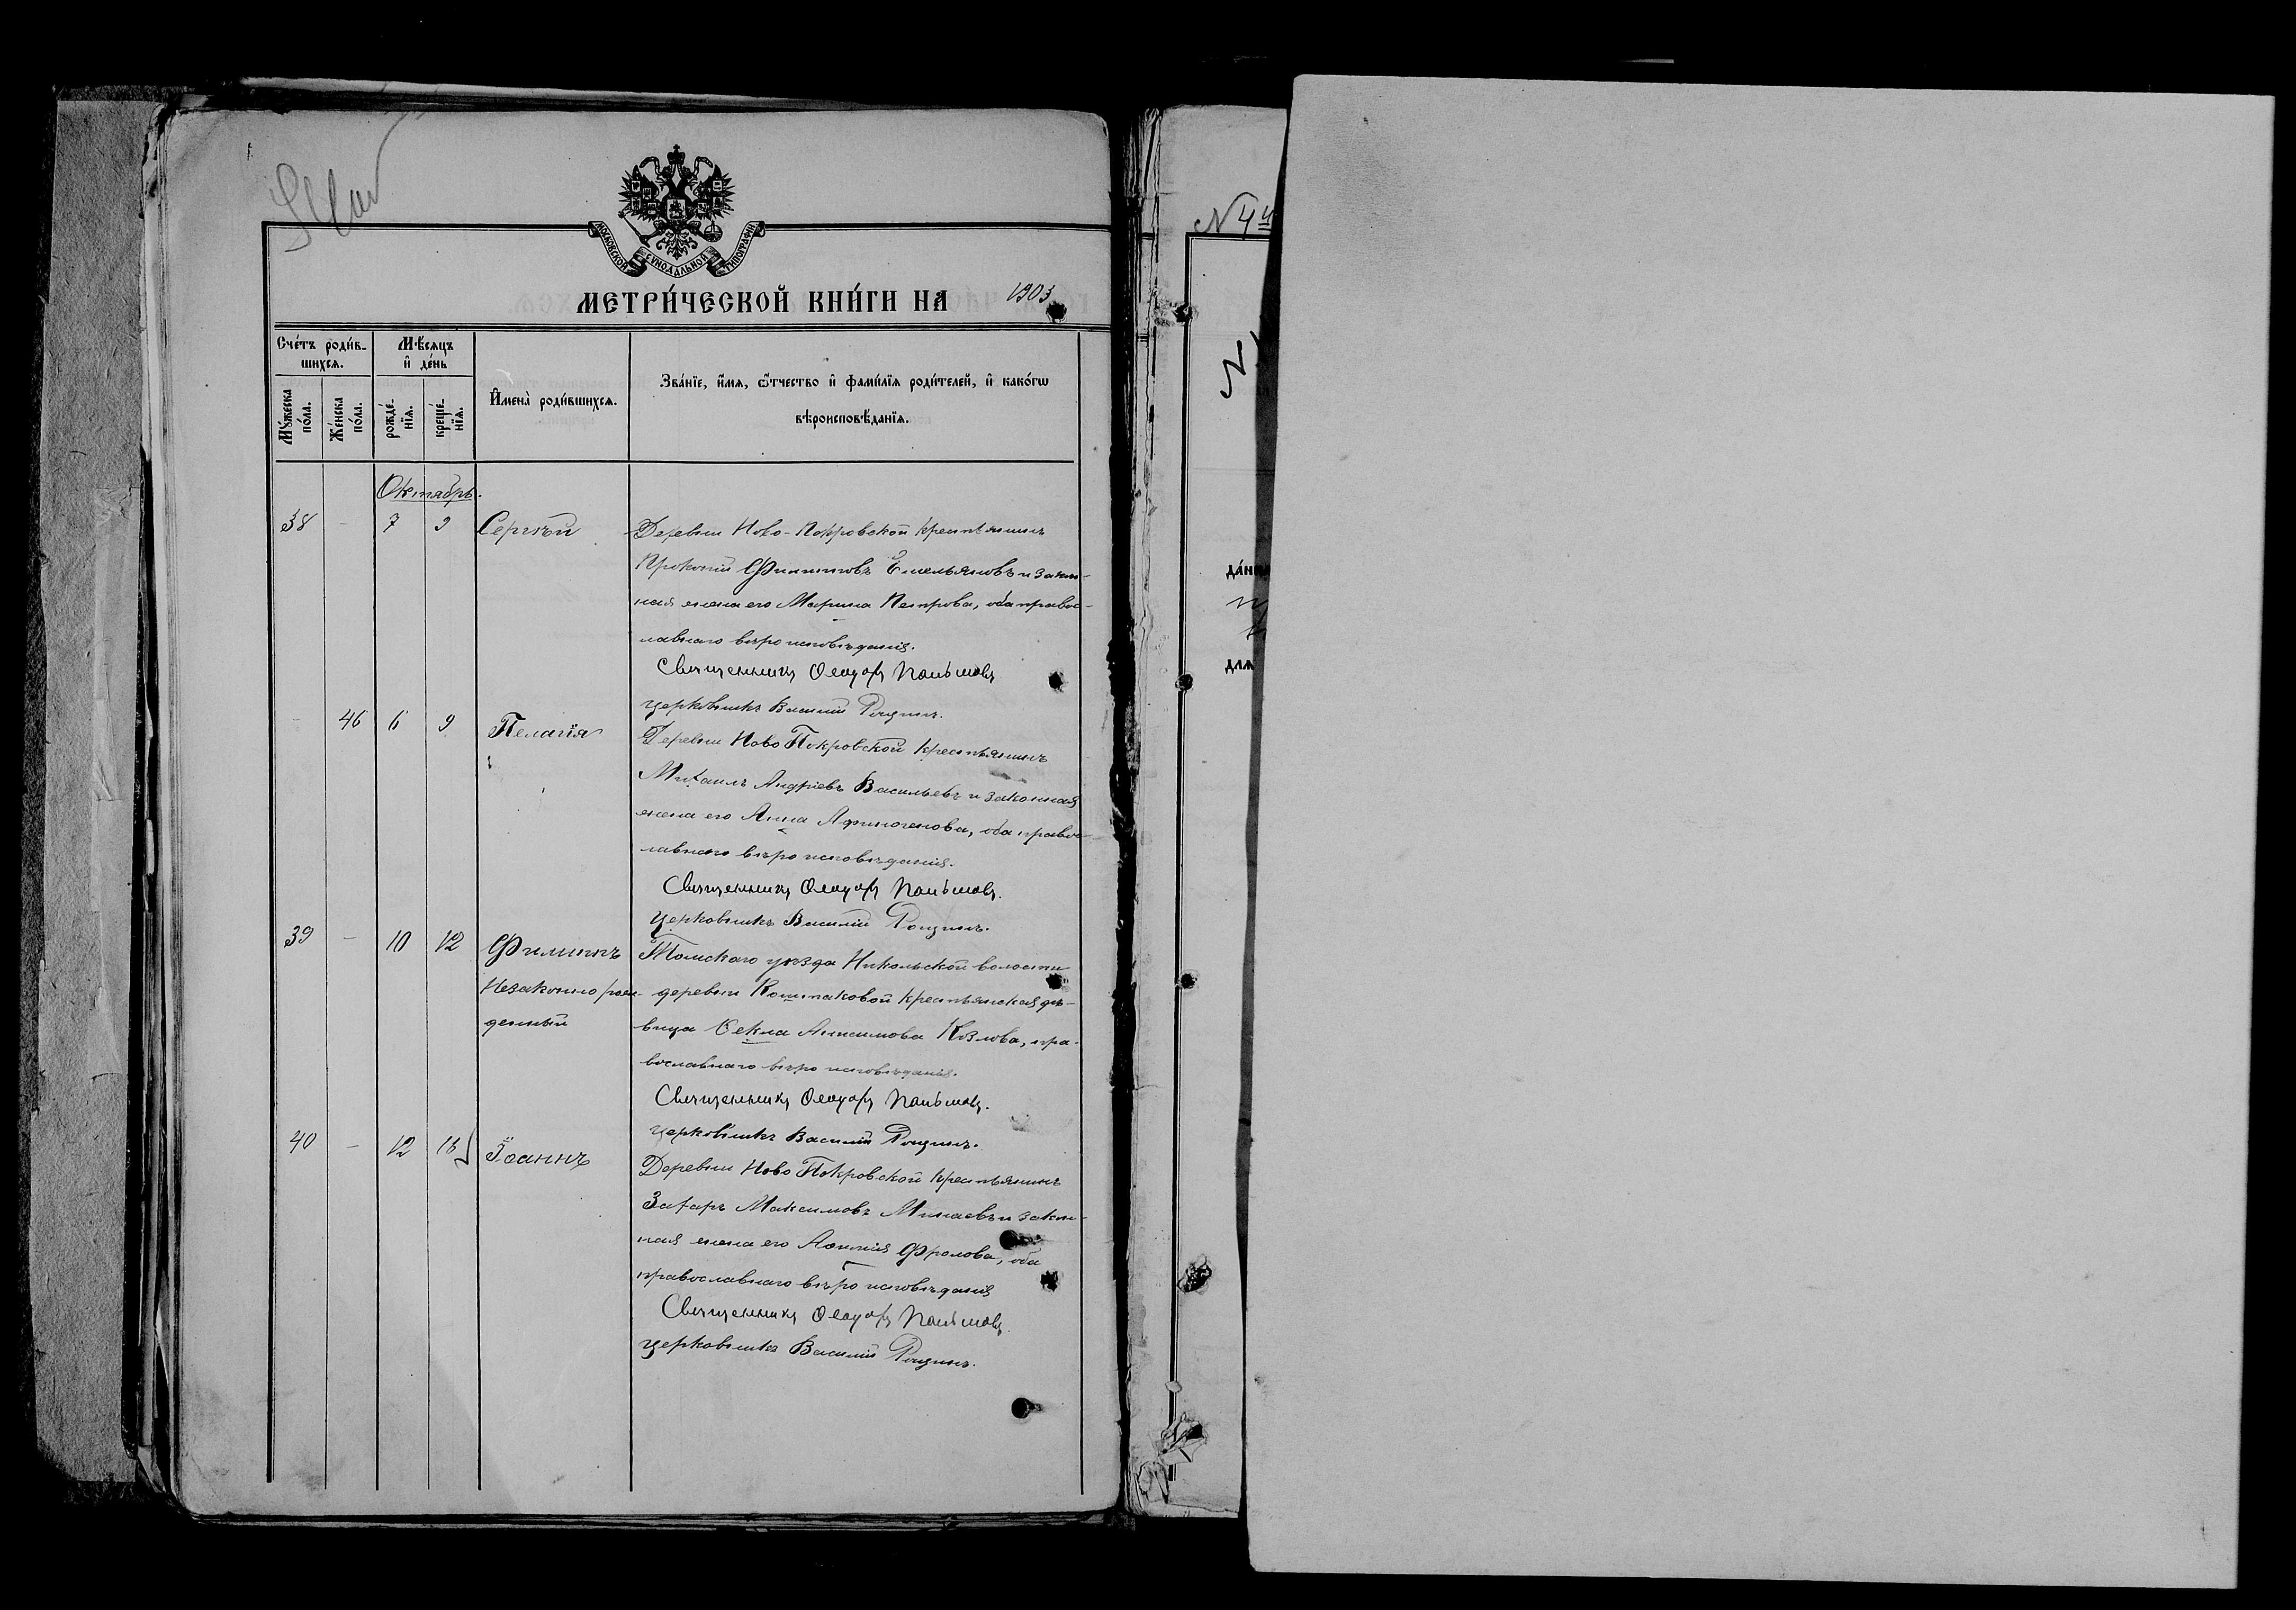 МОСКОВСКОЙ СѴНОДАЛЬНОЙ ТИПОГРАФІИ
МЕТРИ́ЧЕСКОЙ КНИ́ГИ НА 1903
Сче́тъ роди́в-
шихсѧ.
Мѣ́сѧцъ
и҆ де́нь
Мꙋ́жеска
по́ла.
Же́нска
по́ла.
рожде́-
нїѧ.
креще́-
нїѧ.
И҆мена̀ роди́вшихсѧ.
Зва́нїе, и҆́мѧ, ѻ҆́тчество и҆ фами́лїѧ роди́телей, и҆ како́гѡ
вѣроисповѣ́данїѧ.
Октябрь.
38 - 7 9 Сергѣй
Деревни Ново-Покровской крестьянинъ
Прокопій Филипповъ Емельяновъ и закон-
ная жена его Марина Петрова, оба правос-
лавнаго вѣроисповѣданія.
Священникъ Ѳеодоръ
Церковникъ Василій Рощинъ.
- 46 6 9 Пелагія
Деревни Ново Покровской крестьянинъ
Михаилъ Андріевъ Васильевъ и законная
жена его Анна Афиногенова, оба правос-
лавнаго вѣроисповѣданія.
Священникъ Ѳеодоръ
Церковникъ Василій Рощинъ.
39 - 10 12 Филиппъ
Незаконно рож-
денный
Томскаго уѣзда Никольской волости
деревни Кошпаковой крестьянская дѣ-
вица Ѳекла Анисимова Козлова, пра-
вославнаго вѣроисповѣданія.
Священникъ Ѳеодоръ
Церковникъ Василій Рощинъ.
40 - 12 Іоаннъ
Деревни Ново Покровской крестьянинъ
Захаръ Максимовъ Минаевъ и закон-
ная жена его Фролова, оба
православнаго вѣроисповѣданія
Священникъ Ѳеодоръ
Церковникъ Василій Рощинъ.
N 4й
дл҄ѧ